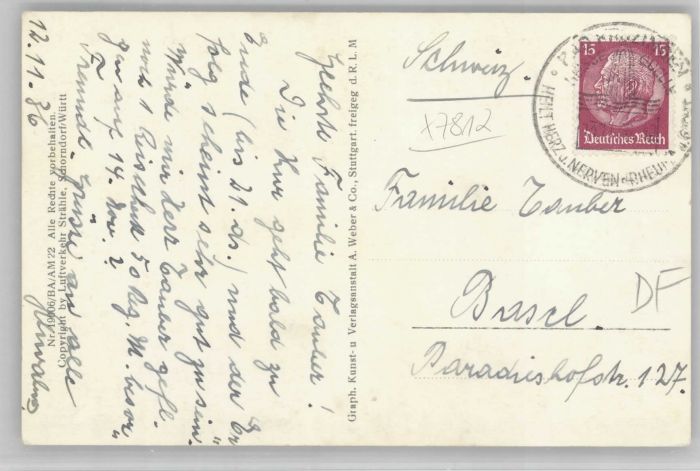 12.11.36
Geehrte Familie Tauber!
Die Kur geht bald zu
Ende (bis 21. ds.) und der Er
folg scheint sehr gut zu sein.
Würde mir Herr Tauber gefl.
noch 1 50 Rg. M.
auf 14. Nov. ?
Freundl. Grüsse an alle
Nr. 19006/BA/AM22 Alle Rechte vorbehalten.
Copyright by Luftverkehr Strähle, Schorndorf/Württ
Graph. Kunst- u Verlagsanstalt A. Weber & Co., Stuttgart. freigeg d.R.L.M
Schweiz.
X7812
Familie Tauber
Basel.
DF
Paradieshofstr. 127.
15 15
Deutsches Reich
HEILT HERZ U. NERVEN RHEUMA